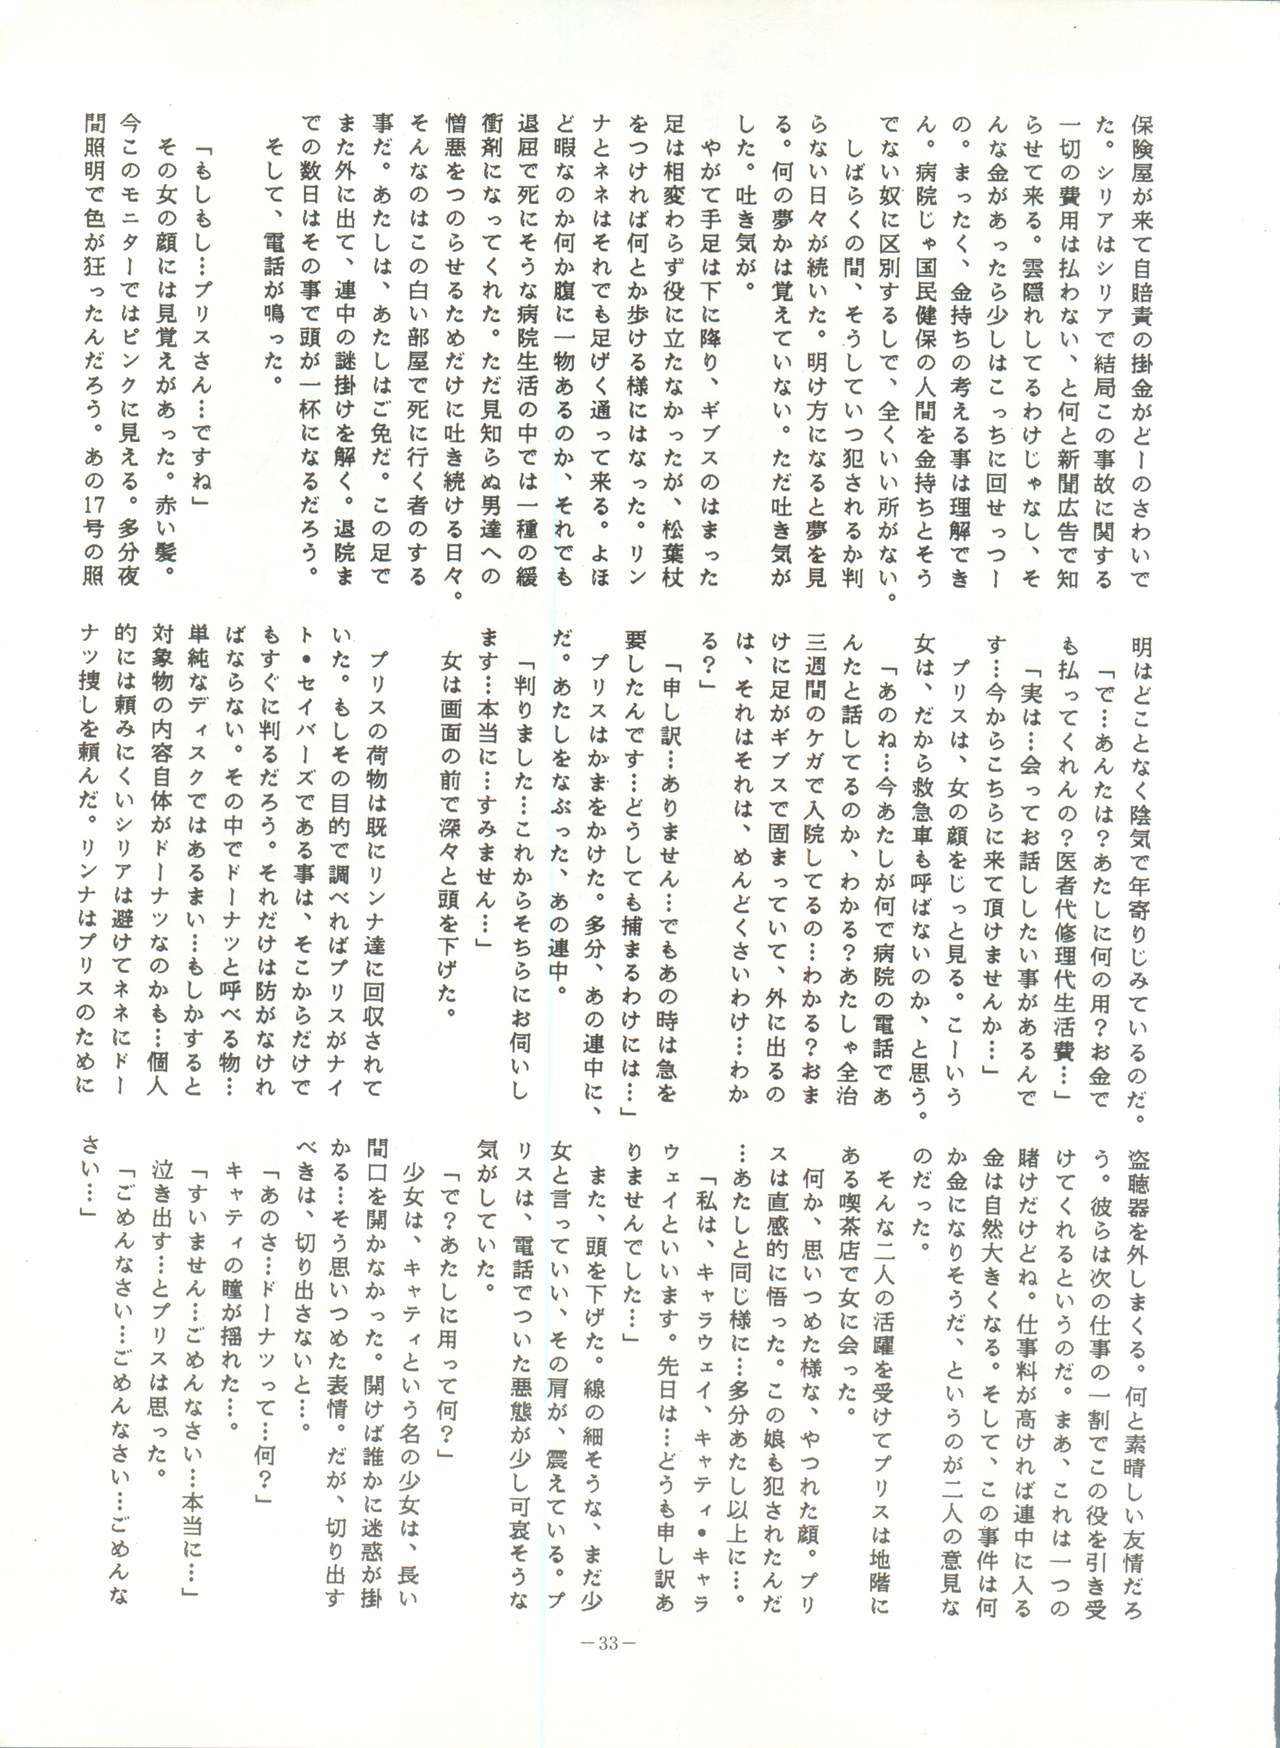 保険屋が来て自賠責の掛金がどーのさわいで
た。シリアはシリアで結局この事故に関する
一切の費用は払わない、と何と新聞広告で知
らせて来る。雲隠れしてるわけじゃなし、そ
んな金があったら少しはこっちに回せっつー
の。まったく、金持ちの考える事は理解でき
ん。病院じゃ国民健保の人間を金持ちとそう
でない奴に区別するしで、全くいい所がない。
しばらくの間、そうしていつ犯されるか判
らない日々が続いた。明け方になると夢を見
る。何の夢かは覚えていない。ただ吐き気が
した。吐き気が。
やがて手足は下に降り、ギブスのはまった
足は相変わらず役に立たなかったが、松葉杖
をつければ何とか歩ける様にはなった。リン
ナとネネはそれでも足げく通って来る。よほ
ど暇なのか何か腹に一物あるのか、それでも
退屈で死にそうな病院生活の中では一種の緩
衝剤になってくれた。ただ見知らぬ男達への
憎悪をつのらせるためだけに吐き続ける日々。
そんなのはこの白い部屋で死に行く者のする
事だ。あたしは、あたしはご免だ。この足で
また外に出て、連中の謎掛けを解く。退院ま
での数日はその事で頭が一杯になるだろう。
そして、電話が鳴った。
「もしもし…プリスさん…ですね」
その女の顔には見覚えがあった。赤い髪。
今このモニターではピンクに見える。多分夜
間照明で色が狂ったんだろう。あの17号の照
明はどことなく陰気で年寄りじみているのだ。
「で…あんたは？あたしに何の用？お金で
も払ってくれんの？医者代修理代生活費…」
「実は…会ってお話ししたい事があるんで
す…今からこちらに来て頂けませんか…」
プリスは、女の顔をじっと見る。こーいう
女は、だから救急車も呼ばないのか、と思う。
「あのね…今あたしが何で病院の電話であ
んたと話してるのか、わかる？あたしゃ全治
三週間のケガで入院してるの…わかる？おま
けに足がギブスで固まっていて、外に出るの
は、それはそれは、めんどくさいわけ…わか
る？」
「申し訳…ありません…でもあの時は急を
要したんです…どうしても捕まるわけには…」
プリスはかまをかけた。多分、あの連中に、
だ。あたしをなぶった、あの連中。
「判りました…これからそちらにお伺いし
ます…本当に…すみません…」
女は画面の前で深々と頭を下げた。
プリスの荷物は既にリンナ達に回収されて
いた。もしその目的で調べればプリスがナイ
ト・セイバーズである事は、そこからだけで
もすぐに判るだろう。それだけは防がなけれ
ばならない。その中でドーナツと呼べる物…
単純なディスクではあるまい…もしかすると
対象物の内容自体がドーナツなのかも…個人
的には頼みにくいシリアは避けてネネにドー
ナツ捜しを頼んだ。リンナはプリスのために
盗聴器を外しまくる。何と素晴しい友情だろ
う。彼らは次の仕事の一割でこの役を引き受
けてくれるというのだ。まあ、これは一つの
賭けだけどね。仕事料が高ければ連中に入る
金は自然大きくなる。そして、この事件は何
か金になりそうだ、というのが二人の意見な
のだった。
そんな二人の活躍を受けてプリスは地階に
ある喫茶店で女に会った。
何か、思いつめた様な、やつれた顔。プリ
スは直感的に悟った。この娘も犯されたんだ
…あたしと同じ様に…多分あたし以上に…。
「私は、キャラウェイ、キャティ・キャラ
ウェイといいます。先日は…どうも申し訳あ
りませんでした…」
また、頭を下げた。線の細そうな、まだ少
女と言っていい、その肩が、震えている。プ
リスは、電話でついた悪態が少し可哀そうな
気がしていた。
「で？あたしに用って何？」
少女は、キャティという名の少女は、長い
間口を開かなかった。開けば誰かに迷惑が掛
かる…そう思いつめた表情。だが、切り出す
べきは、切り出さないと…。
「あのさ…ドーナツって…何？」
キャティの瞳が揺れた…。
「すいません…ごめんなさい…本当に…」
泣き出す…とプリスは思った。
「ごめんなさい…ごめんなさい…ごめんな
さい…」
－33－